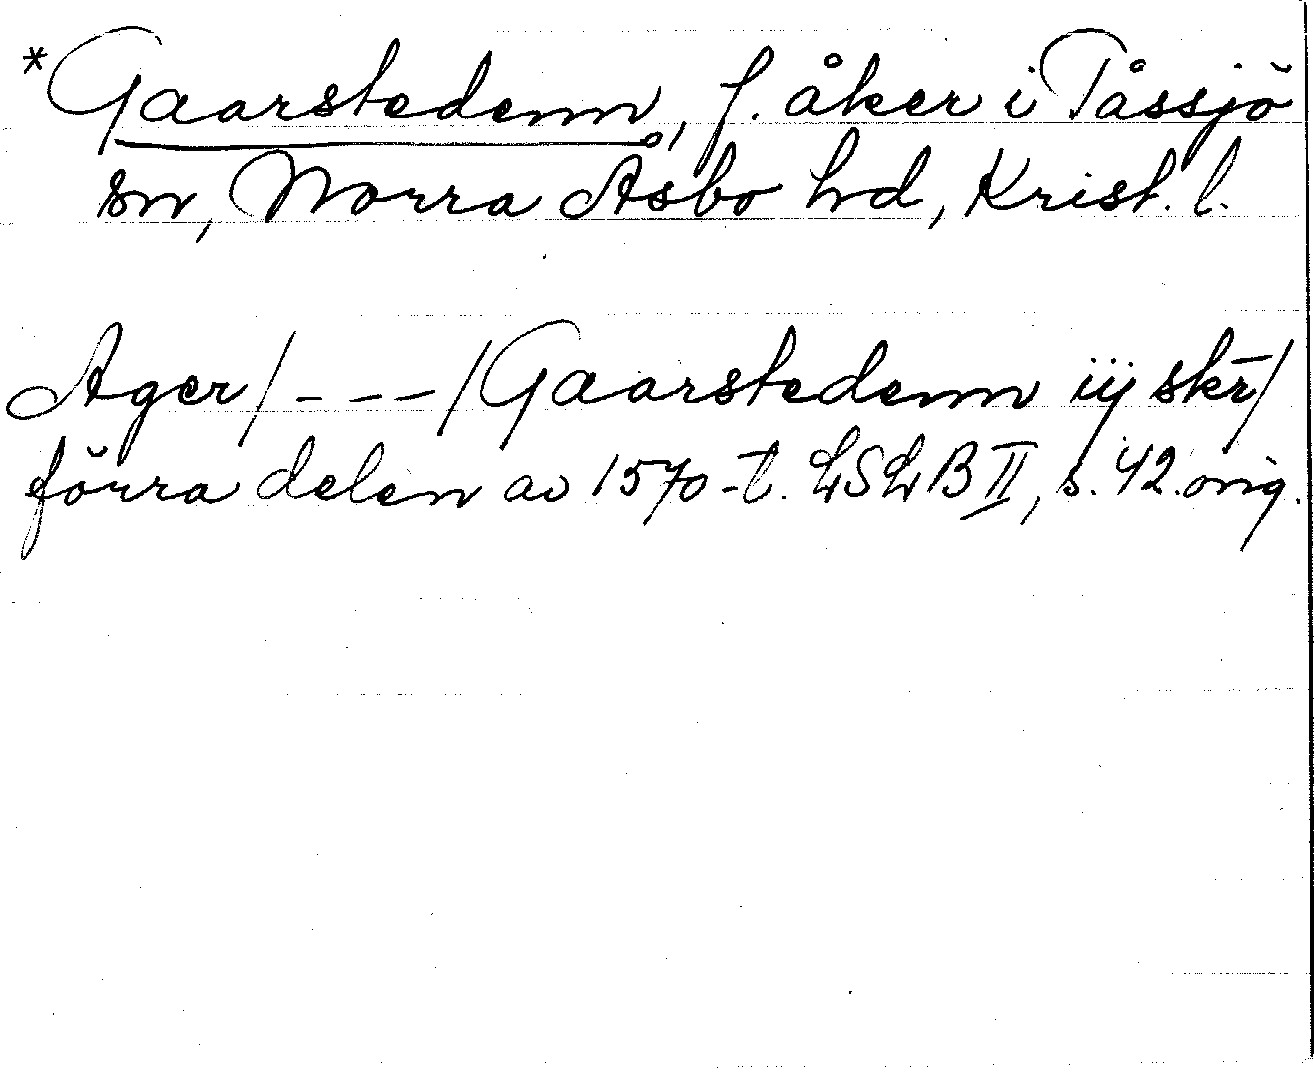 *Gaarstedenn, f. åker i Tåssjö
sn, Norra Åsbo hd, Krist. l.
Ager/---/Gaarstedenn iij skr̄/
förra delen av 1570-t. LSLB II, s. 42. orig.